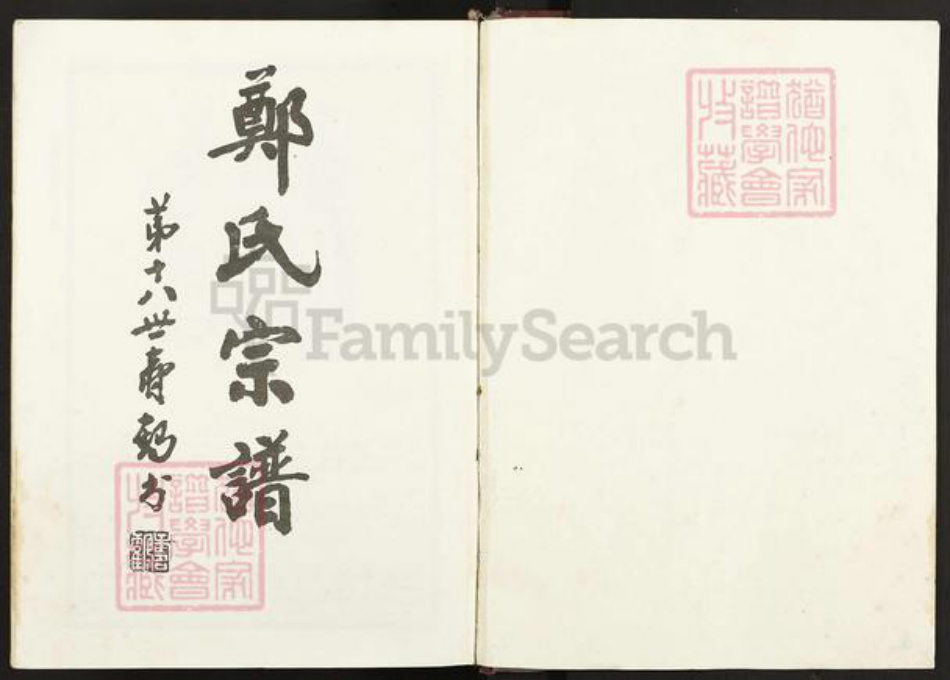 猶他家
譜學會
收藏
鄭氏宗譜
第十八世壽
書
FamilySearch
猶他家
譜學會
收藏